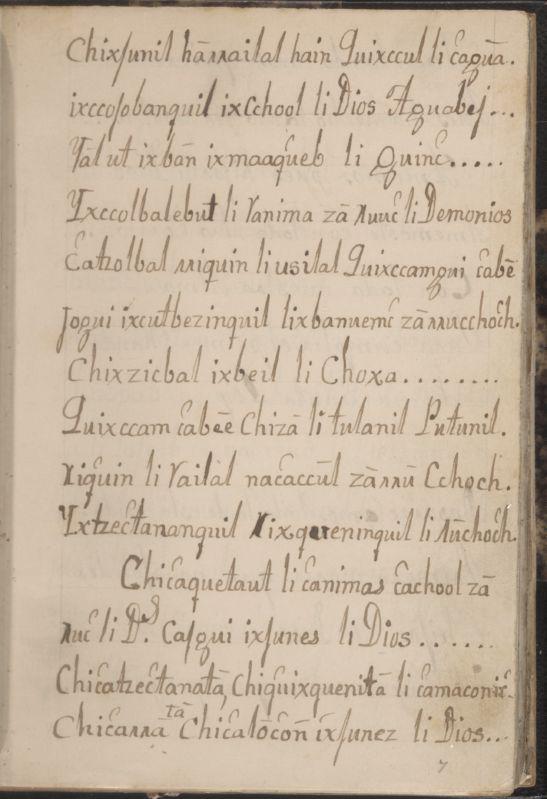 Chixſunil hāɴɴailal hain Quixccul li c̄agūa.
ixccoſobanquil ixCchool li Dios Aguabej...
Yāl ut ixbān ixmaaquēb li Quinc̄.....
Yxccolbalebut li ɤanima zā ɴuuc̄ li Demonios
C̄atzolbal ɴiquin li usilal Quixccamgui c̄abē
Jogui ixcutbezinquil lixbanuemc̄ zāɴɴucchoc̄h.
Chixzicbal ixbeil li Choxa........
Quixccam c̄abēe Chizā li tulanil Putunil.
ɴiquīn li ɤailāl nac̄accūl zāɴɴū Cchoch.
Yxtzec̄tananquil ɴixqueninquil li ɴūchoc̄h.
Chic̄aquetaut li c̄animas c̄achool zā
ɴuc̄ li D.s Caſgui ixſunes li Dios......
Chic̄atzec̄tanatā, Chiquīxquenitā li c̄amaconic̄.
Chic̄aɴɴātā Chic̄alōcōn īxſunez li Dios...
7